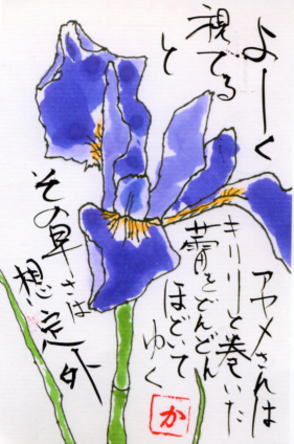 よーく
視てる
と
アヤメさんは
キリリと巻いた
蕾をどんどん
ほどいて
ゆく
その早さは
想定外
か